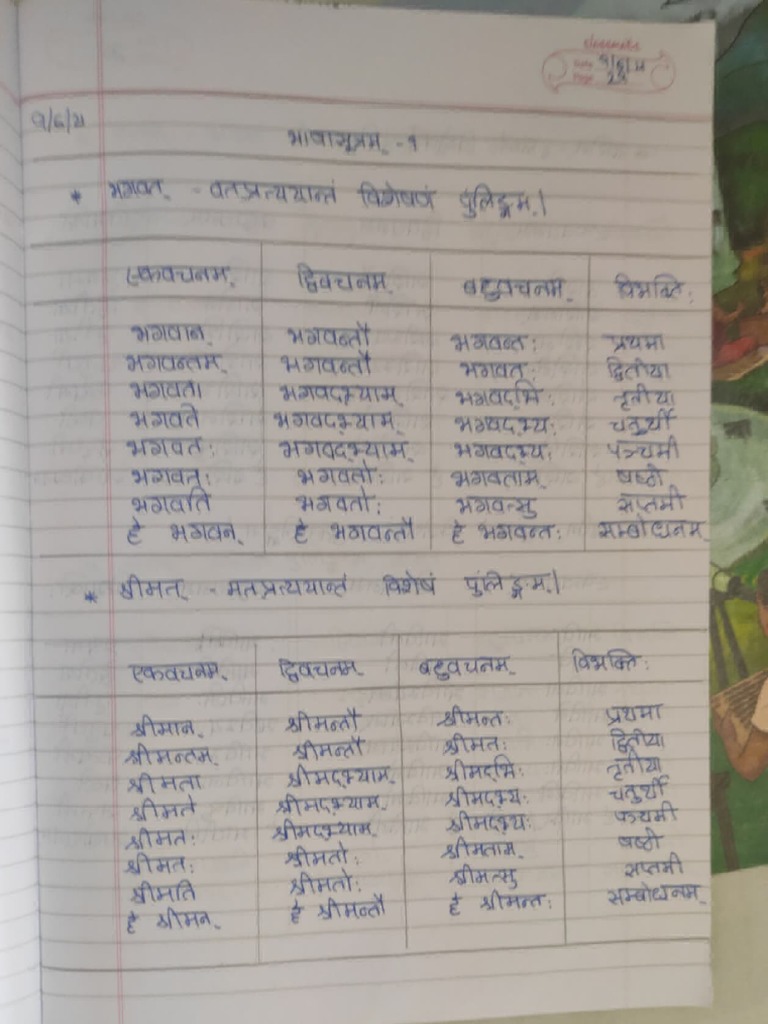 classmate
Date
Page
9/6/21
भाषासूत्रम् - १
* भगवत् - वतप्रत्ययान्तं विशेषणं पुंलिङ्गम् ।
एकवचनम् द्विवचनम् बहुवचनम् विभक्तिः
भगवान् भगवन्तौ भगवन्तः प्रथमा
भगवन्तम् भगवन्तौ भगवतः द्वितीया
भगवता भगवद्भ्याम् भगवद्भिः तृतीया
भगवते भगवद्भ्याम् भगवद्भ्यः चतुर्थी
भगवतः भगवद्भ्याम् भगवद्भ्यः पञ्चमी
भगवतः भगवतोः भगवताम् षष्ठी
भगवति भगवतोः भगवत्सु सप्तमी
हे भगवन् हे भगवन्तौ हे भगवन्तः सम्बोधनम्
* श्रीमत् - मतप्रत्ययान्तं विशेषं पुंलिङ्गम् ।
एकवचनम् द्विवचनम् बहुवचनम् विभक्तिः
श्रीमान् श्रीमन्तौ श्रीमन्तः प्रथमा
श्रीमन्तम् श्रीमन्तौ श्रीमतः द्वितीया
श्रीमता श्रीमद्भ्याम् श्रीमद्भिः तृतीया
श्रीमते श्रीमद्भ्याम् श्रीमद्भ्यः चतुर्थी
श्रीमतः श्रीमद्भ्याम् श्रीमद्भ्यः पञ्चमी
श्रीमतः श्रीमतोः श्रीमताम् षष्ठी
श्रीमति श्रीमतोः श्रीमत्सु सप्तमी
हे श्रीमन् हे श्रीमन्तौ हे श्रीमन्तः सम्बोधनम्